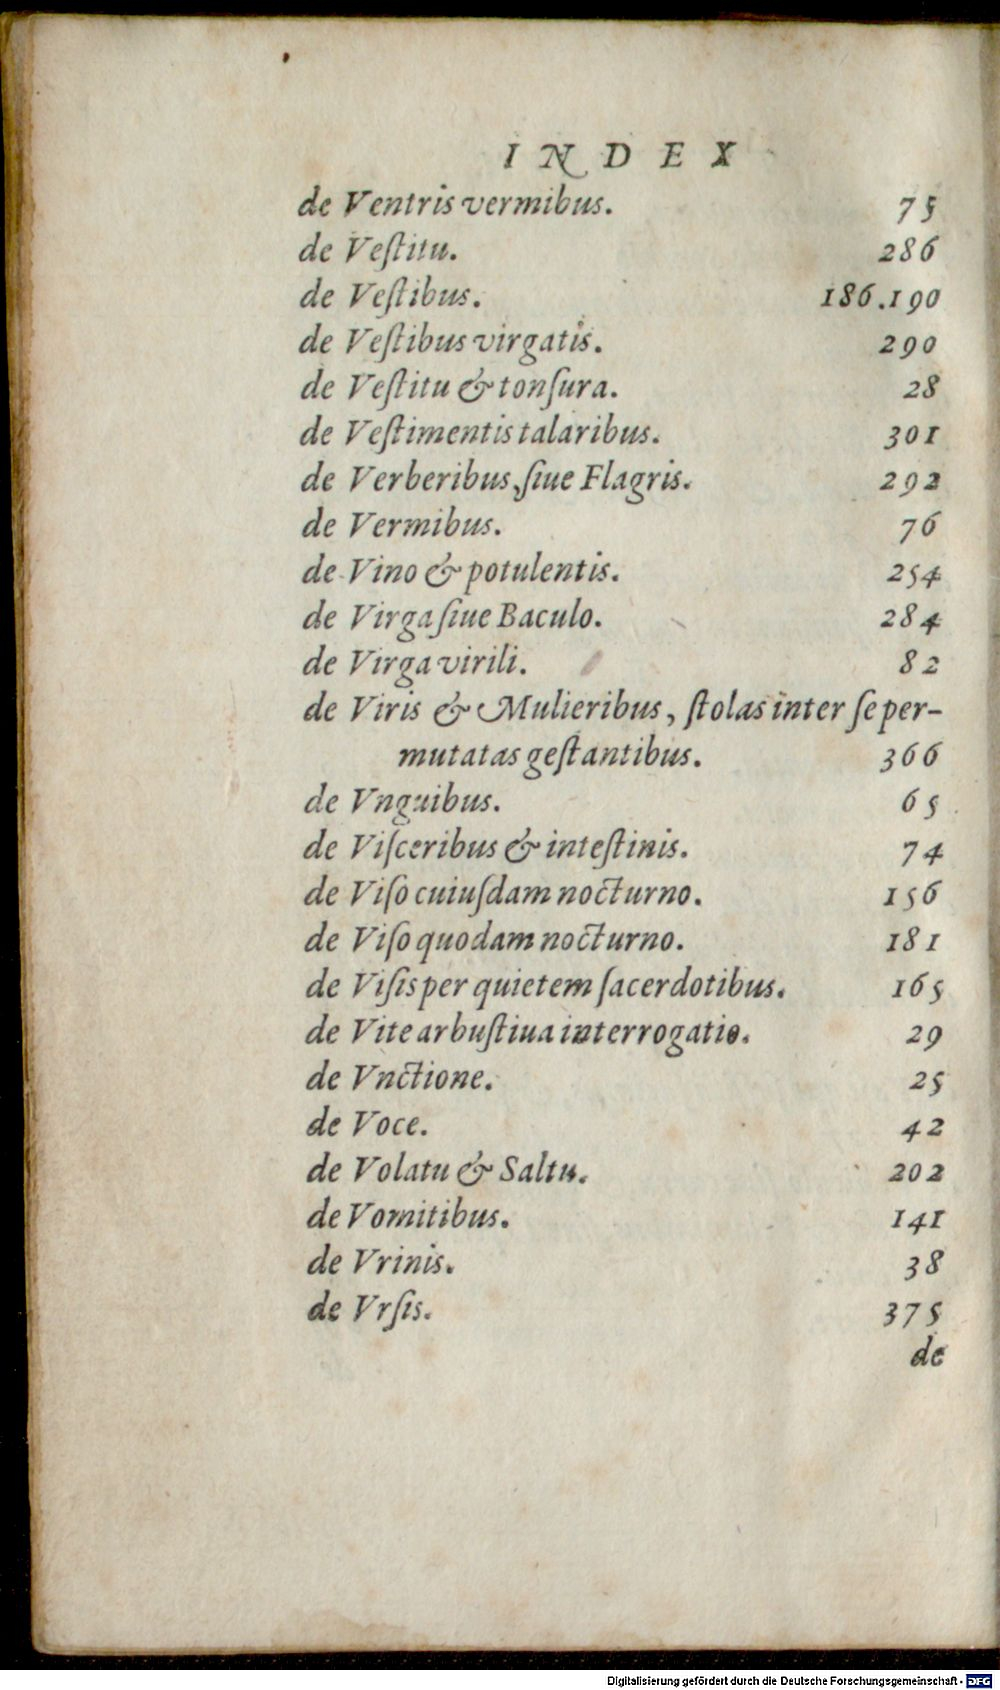 INDEX
de Ventris vermibus. 75
de Veſtitu. 286
de Veſtibus. 186.190
de Veſtibus virgatis. 290
de Veſtitu & tonſura. 28
de Veſtimentis talaribus. 301
de Verberibus, ſiue Flagris. 292
de Vermibus. 76
de Vino & potulentis. 254
de Virga ſiue Baculo. 284
de Virga virili. 82
de Viris & Mulieribus, ſtolas inter ſe per-
mutatas geſtantibus. 366
de Vnguibus. 65
de Viſceribus & inteſtinis. 74
de Viſo cuiuſdam nocturno. 156
de Viſo quodam nocturno. 181
de Viſis per quietem ſacerdotibus. 165
de Vite arbuſtiua interrogatio. 29
de Vnctione. 25
de Voce. 42
de Volatu & Saltu. 202
de Vomitibus. 141
de Vrinis. 38
de Vrſis. 375
de
Digitalisierung gefördert durch die Deutsche Forschungsgemeinschaft - DFG